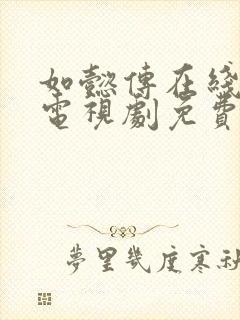 如懿傳在綫
電視劇免費
夢里幾度寒秋